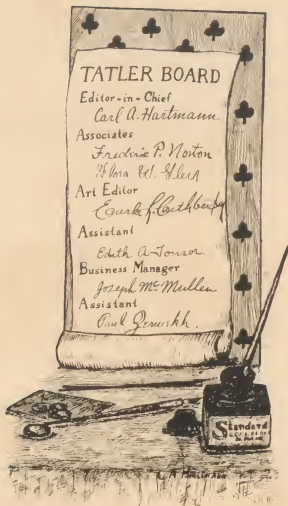 TATLER BOARD
Editor-in-Chief
Carl A. Hartmann
Associates
Frederic P. Norton
Flora W.
Art Editor
Earle
Assistant
Edith A. Tonsor
Business Manager
Joseph Mc Mullen
Assistant
Paul
Standard